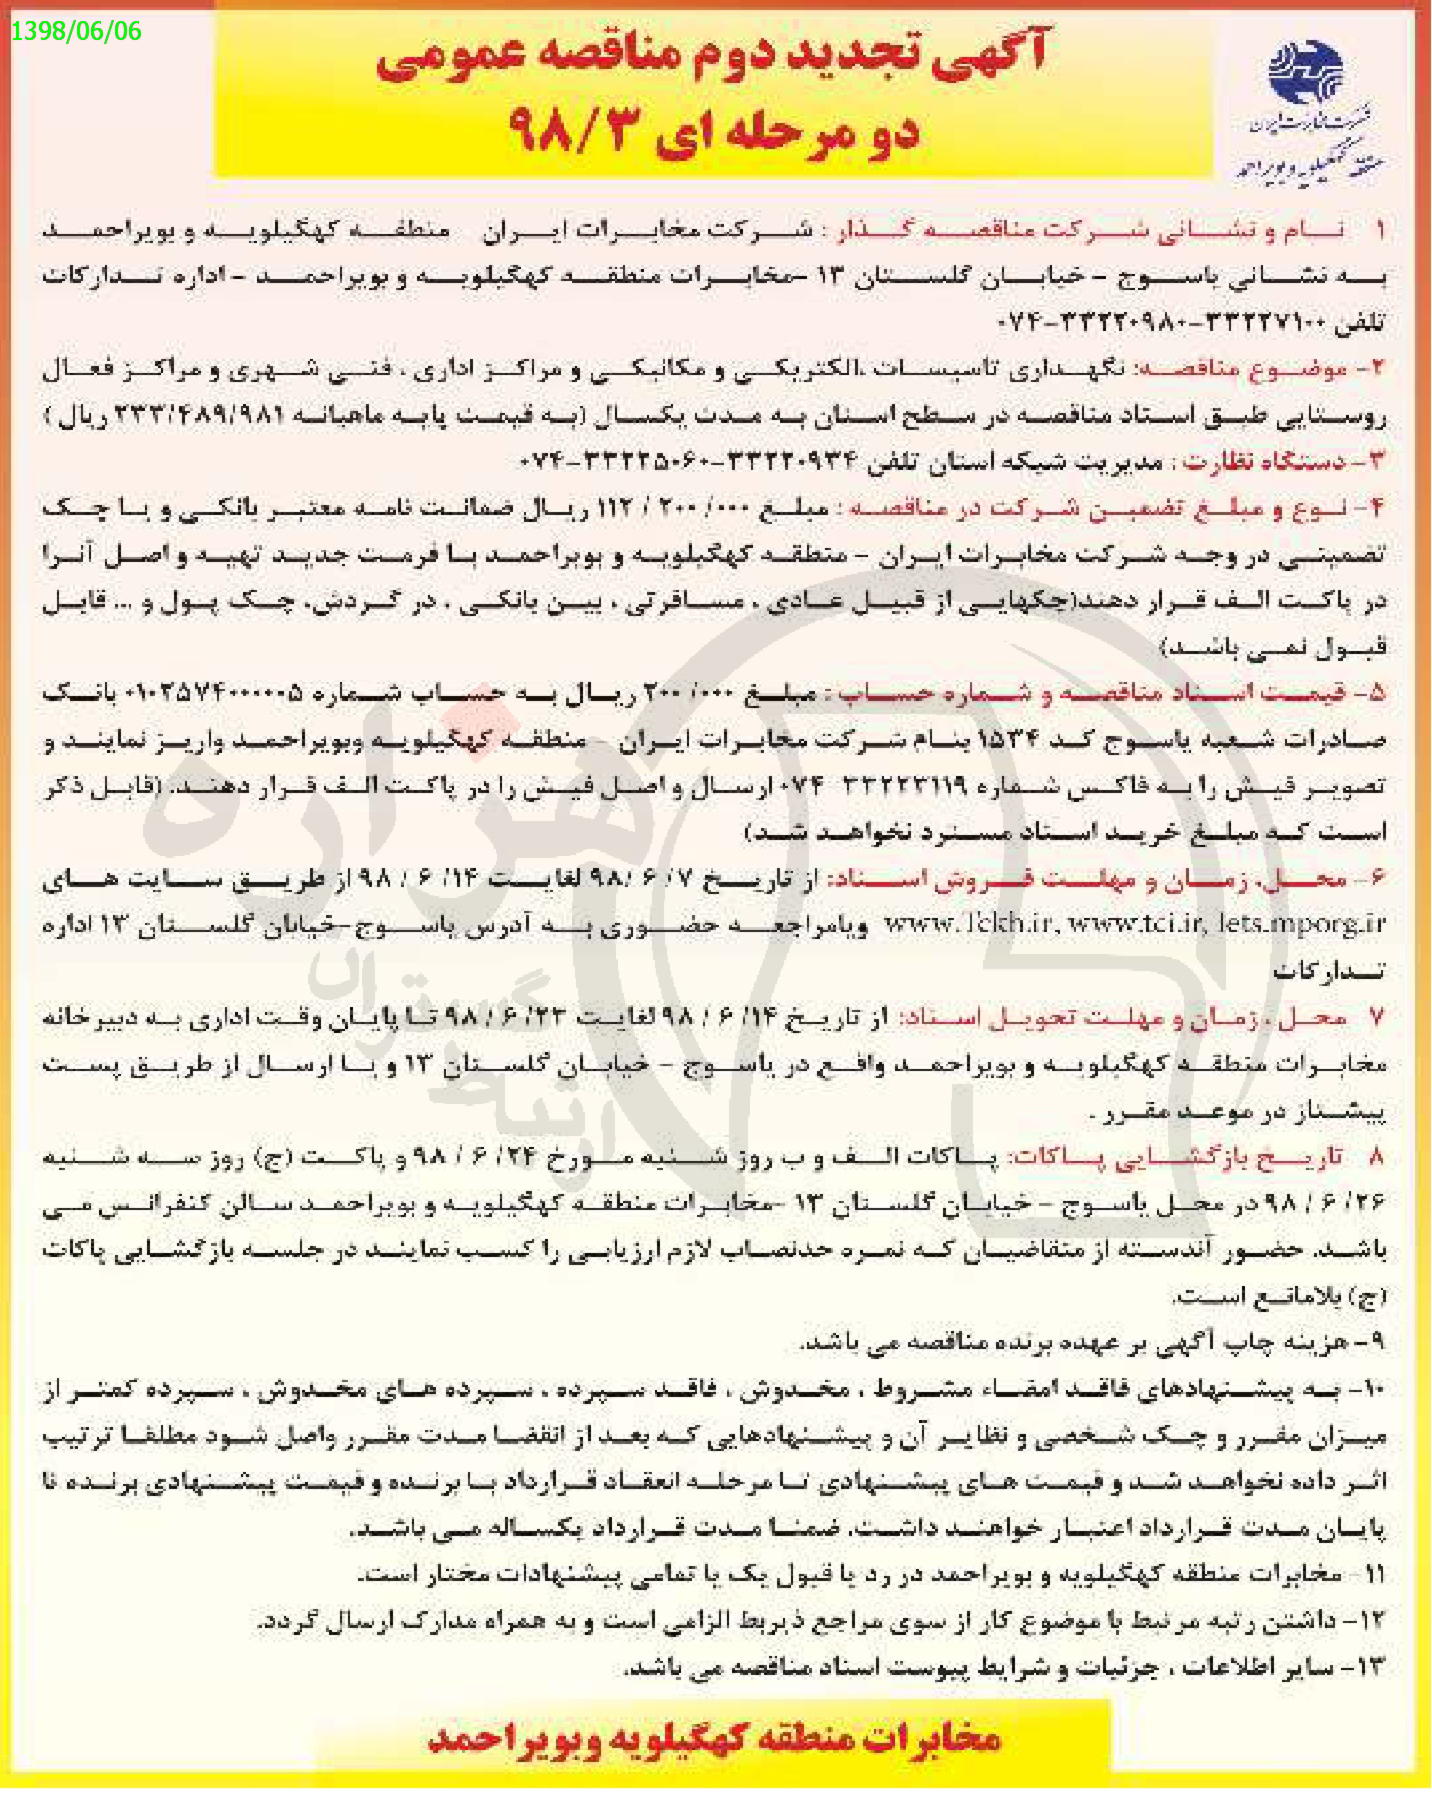 1398/06/06
آگهی تجدید دوم مناقصه عمومی
دو مرحله ای ۹۸/۳
شرکت مخابرات ایران
منطقه کهگیلویه و بویراحمد
۱ نام و نشانی شرکت مناقصه گذار : شرکت مخابرات ایران منطقه کهگیلویه و بویراحمد
به نشانی یاسوج - خیابان گلستان ۱۳ -مخابرات منطقه کهگیلویه و بویراحمد - اداره تدارکات
تلفن ۳۳۲۲۷۱۰۰-۰۷۴-۳۳۲۲۰۹۸۰
۲- موضوع مناقصه: نگهداری تاسیسات ،الکتریکی و مکانیکی و مراکز اداری ، فنی شهری و مراکز فعال
روستایی طبق اسناد مناقصه در سطح استان به مدت یکسال (به قیمت پایه ماهیانه ۲۳۳/۴۸۹/۹۸۱ ریال )
۳- دستگاه نظارت : مدیریت شبکه استان تلفن ۳۳۲۲۰۹۳۴-۰۷۴-۳۳۲۲۵۰۶۰
۴- نوع و مبلغ تضمین شرکت در مناقصه : مبلغ ۱۱۲ / ۲۰۰ /۰۰۰ ریال ضمانت نامه معتبر بانکی و یا چک
تضمینی در وجه شرکت مخابرات ایران - منطقه کهگیلویه و بویراحمد با فرمت جدید تهیه و اصل آنرا
در پاکت الف قرار دهند(چکهایی از قبیل عادی ، مسافرتی ، بین بانکی ، در گردش، چک پول و ... قابل
قبول نمی باشد)
۵- قیمت اسناد مناقصه و شماره حساب : مبلغ ۲۰۰ /۰۰۰ ریال به حساب شماره ۰۱۰۲۵۷۴۰۰۰۰۰۵ بانک
صادرات شعبه یاسوج کد ۱۵۳۴ بنام شرکت مخابرات ایران - منطقه کهگیلویه وبویراحمد واریز نمایند و
تصویر فیش را به فاکس شماره ۳۳۲۲۳۱۱۹ ۰۷۴ ارسال و اصل فیش را در پاکت الف قرار دهند. (قابل ذکر
است که مبلغ خرید اسناد مسترد نخواهد شد)
۶- محل، زمان و مهلت فروش اسناد: از تاریخ ۷/ ۶ /۹۸ لغایت ۱۴/ ۶ / ۹۸ از طریق سایت های
www.Tckh.ir, www.tci.ir, Iets.mporg.ir ویامراجعه حضوری به آدرس یاسوج-خیابان گلستان ۱۳ اداره
تدارکات
۷ محل ، زمان و مهلت تحویل اسناد: از تاریخ ۱۴/ ۶ / ۹۸ لغایت ۲۳/ ۶ / ۹۸ تا پایان وقت اداری به دبیرخانه
مخابرات منطقه کهگیلویه و بویراحمد واقع در یاسوج - خیابان گلستان ۱۳ و یا ارسال از طریق پست
پیشتاز در موعد مقرر .
۸ تاریخ بازگشایی پاکات: پاکات الف و ب روز شنبه مورخ ۲۴/ ۶ / ۹۸ و پاکت (ج) روز سه شنبه
۲۶/ ۶ / ۹۸ در محل یاسوج - خیابان گلستان ۱۳ -مخابرات منطقه کهگیلویه و بویراحمد سالن کنفرانس می
باشد. حضور آندسته از متقاضیان که نمره حدنصاب لازم ارزیابی را کسب نمایند در جلسه بازگشایی پاکات
(ج) بلامانع است.
۹- هزینه چاپ آگهی بر عهده برنده مناقصه می باشد.
۱۰- به پیشنهادهای فاقد امضاء مشروط ، مخدوش ، فاقد سپرده ، سپرده های مخدوش ، سپرده کمتر از
میزان مقرر و چک شخصی و نظایر آن و پیشنهادهایی که بعد از انقضا مدت مقرر واصل شود مطلقا ترتیب
اثر داده نخواهد شد و قیمت های پیشنهادی تا مرحله انعقاد قرارداد با برنده و قیمت پیشنهادی برنده تا
پایان مدت قرارداد اعتبار خواهند داشت. ضمنا مدت قرارداد یکساله می باشد.
۱۱- مخابرات منطقه کهگیلویه و بویراحمد در رد یا قبول یک یا تمامی پیشنهادات مختار است.
۱۲- داشتن رتبه مرتبط با موضوع کار از سوی مراجع ذیربط الزامی است و به همراه مدارک ارسال گردد.
۱۳- سایر اطلاعات ، جزئیات و شرایط پیوست اسناد مناقصه می باشد.
مخابرات منطقه کهگیلویه وبویراحمد
هزاره
گسترش
ارتباط